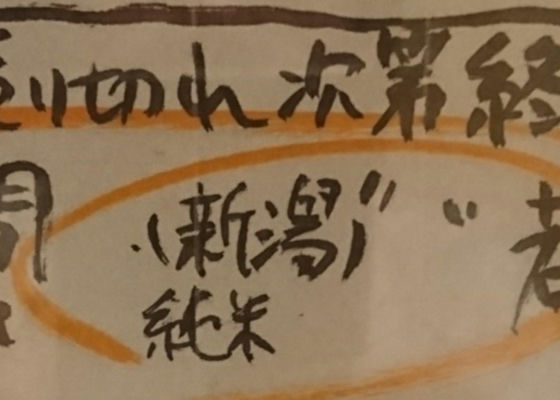 売り切れ次第終
(新潟)" "
純米